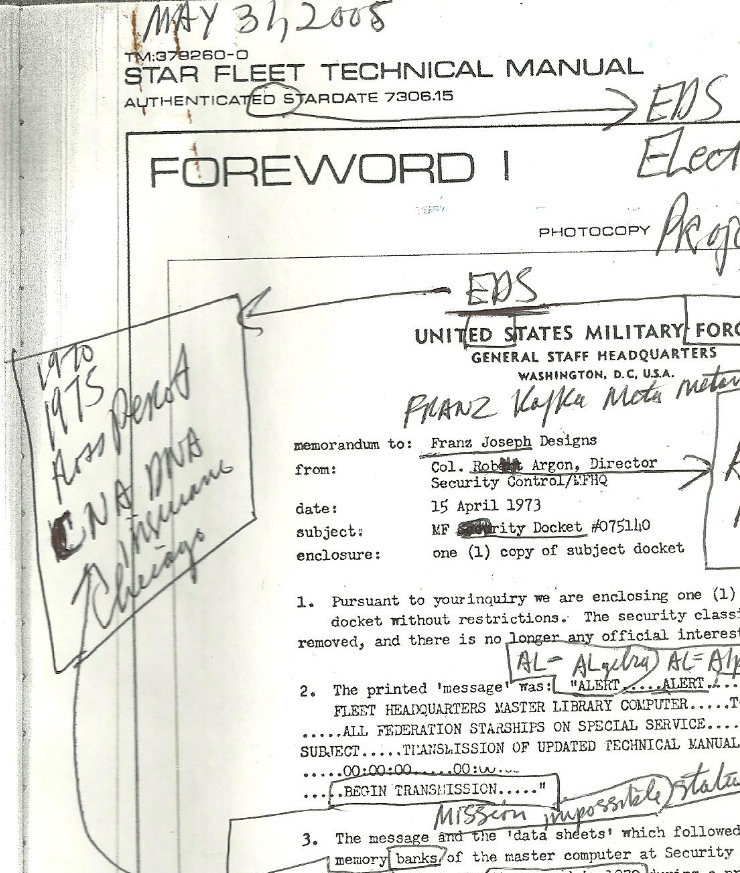 MAY 31, 2005
TM:379260-0
STAR FLEET TECHNICAL MANUAL
AUTHENTICATED STARDATE 7306.15
EDS
Elect
FOREWORD I
PHOTOCOPY
Proj
EDS
UNITED STATES MILITARY FORC
GENERAL STAFF HEADQUARTERS
WASHINGTON, D.C, U.S.A.
FRANZ Kafka Meta Metam
1970
1975
Ross Perot
CNA DNA
Insurance
Chicago
memorandum to: Franz Joseph Designs
from: Col. Robert Argon, Director
Security Control/MFHQ
date: 15 April 1973
subject: MF Security Docket #075140
enclosure: one (1) copy of subject docket
1. Pursuant to yourinquiry we are enclosing one (1)
docket without restrictions. The security classi
removed, and there is no longer any official interest
AL= ALgebra AL=Alp
2. The printed 'message' was: "ALERT.....ALERT....
FLEET HEADQUARTERS MASTER LIBRARY COMPUTER.....T
.....ALL FEDERATION STARSHIPS ON SPECIAL SERVICE....
SUBJECT.....TRANSMISSION OF UPDATED TECHNICAL MANUAL
.....00:00:00.....00:00...
.....BEGIN TRANSMISSION....."
Mission impossible
3. The message and the 'data sheets' which followed
memory banks of the master computer at Security